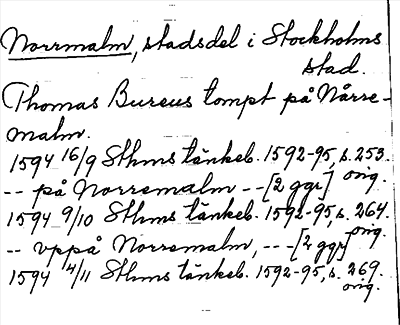 Norrmalm, stadsdel i Stockholms
stad.
Thomas Bureus tompt på Nårre-
malm.
1594 16/9 Sthms tänkeb. 1592-95, s. 253.
orig.
-- på Norremalm -- [2 ggr]
1594 9/10 Sthms tänkeb. 1592-95, s. 264.
orig.
-- vppå Norremalm, --- [2 ggr]
1594 4/11 Sthms tänkeb. 1592-95, s. 269.
orig.